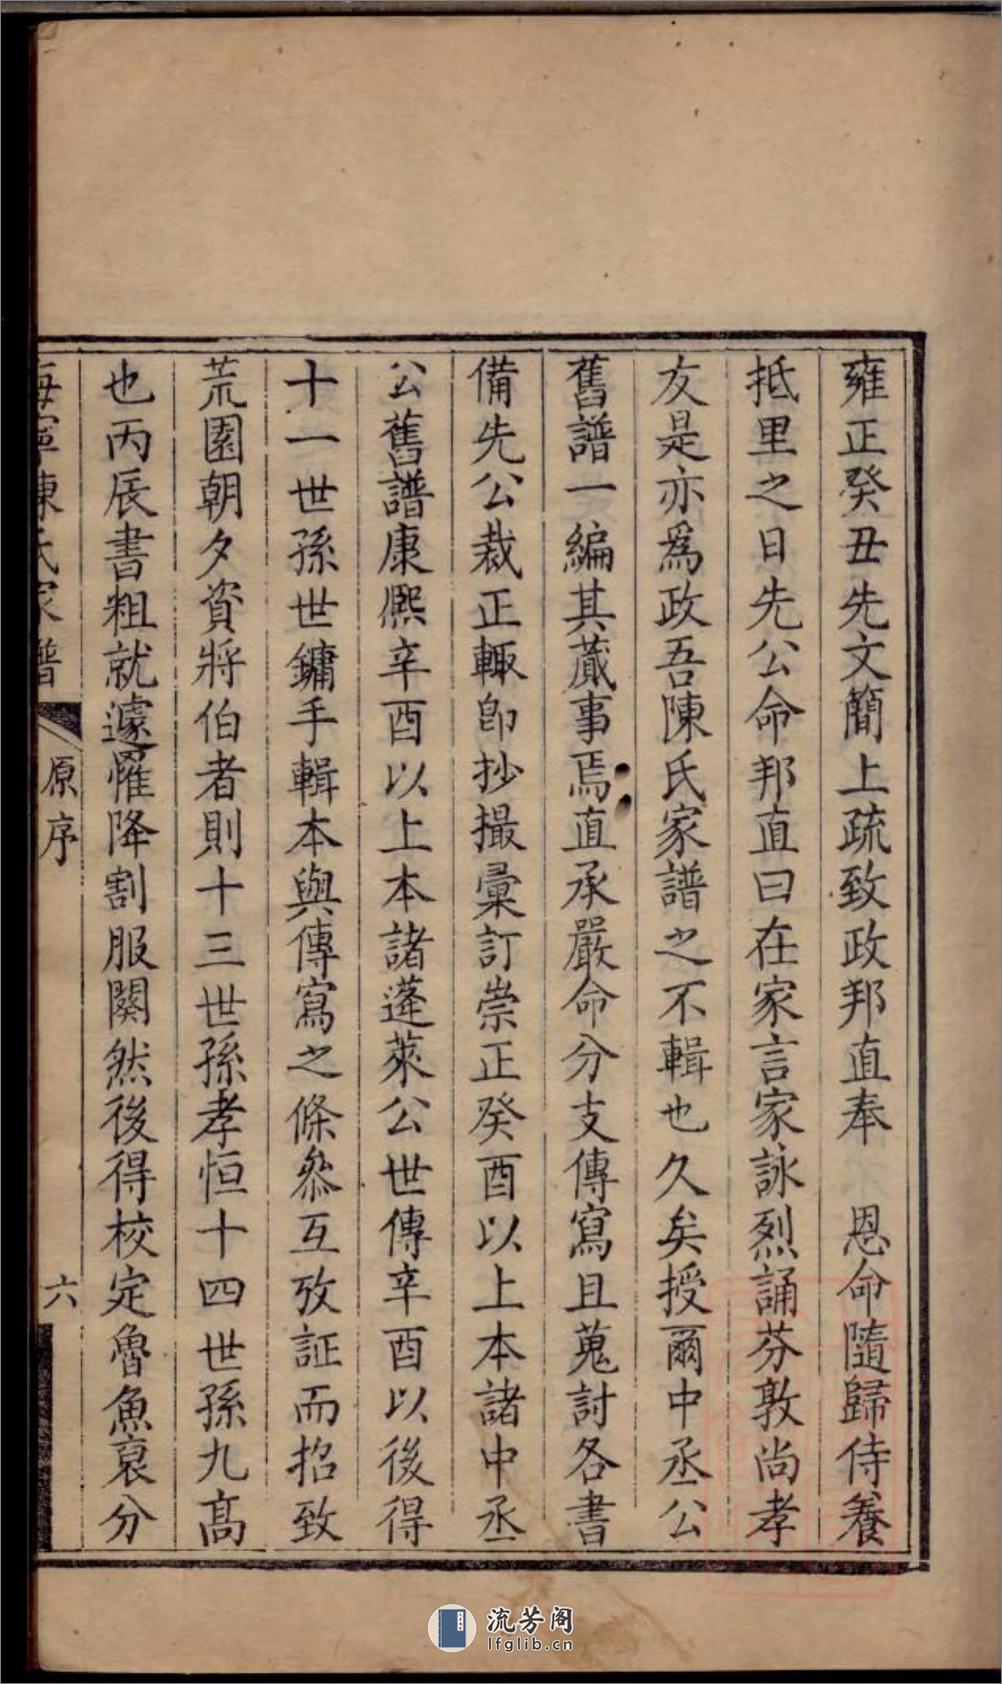 雍正癸丑先文簡上疏致政邦直奉　恩命隨歸侍養
抵里之日先公命邦直曰在家言家詠烈誦芬敦尚孝
友是亦爲政吾陳氏家譜之不輯也久矣授爾中丞公
舊譜一編其蕆事焉直承嚴命分支傳寫且蒐討各書
備先公裁正輙卽抄撮彙訂崇正癸酉以上本諸中丞
公舊譜康熙辛酉以上本諸蓬萊公世傳辛酉以後得
十一世孫世鏞手輯本與傳寫之條叅互攷証而招致
荒園朝夕資將伯者則十三世孫孝恒十四世孫九髙
也丙辰書粗就遽罹降割服闋然後得校定魯魚裒分
海寧陳氏家譜
原序
六
流芳阁
lfglib.cn